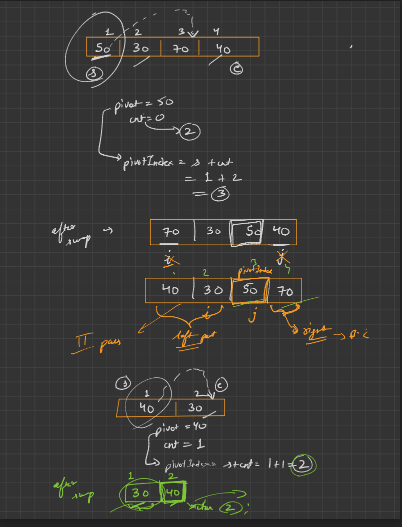 1 2 3 4
50 30 70 40
s e
pivot = 50
cnt = 0
2
pivotIndex = s + cnt
= 1 + 2
= 3
after swap → 70 30 50 40
i j
pivotIndex
2 3 4
40 30 50 70
i j
II pass left part right →
s e
1 2
40 30
pivot = 40
cnt = 1
pivotIndex = s + cnt = 1 + 1 = 2
1 2
after swap 30 40
2